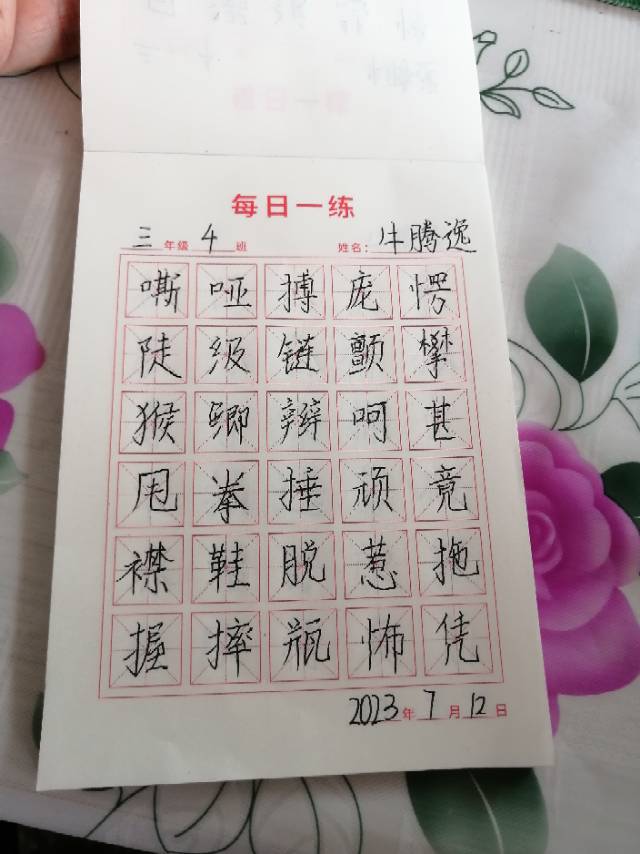 每日一练
三年级 4 班 姓名：牛腾逸
嘶哑搏庞愣
陡级链颤攀
猴卿辫呵甚
甩拳捶顽竟
襟鞋脱惹拖
握摔瓶怖凭
2023年7月12日